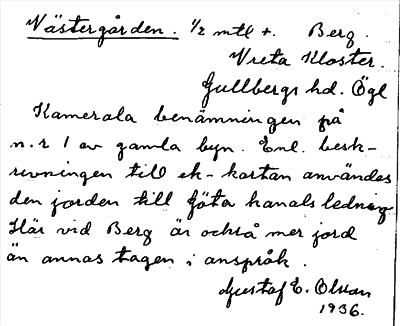 Västergården. 1/2 mtl +. Berg.
Vreta Kloster.
Gullbergs hd. Ögl
Kamerala benämningen på
n.r 1 av gamla byn. Enl. besk-
rivningen till ek-kartan användes
den jorden till Göta kanals ledning
Här vid Berg är också mer jord
än annas tagen i anspråk.
Gustaf E. Olsson
1936.